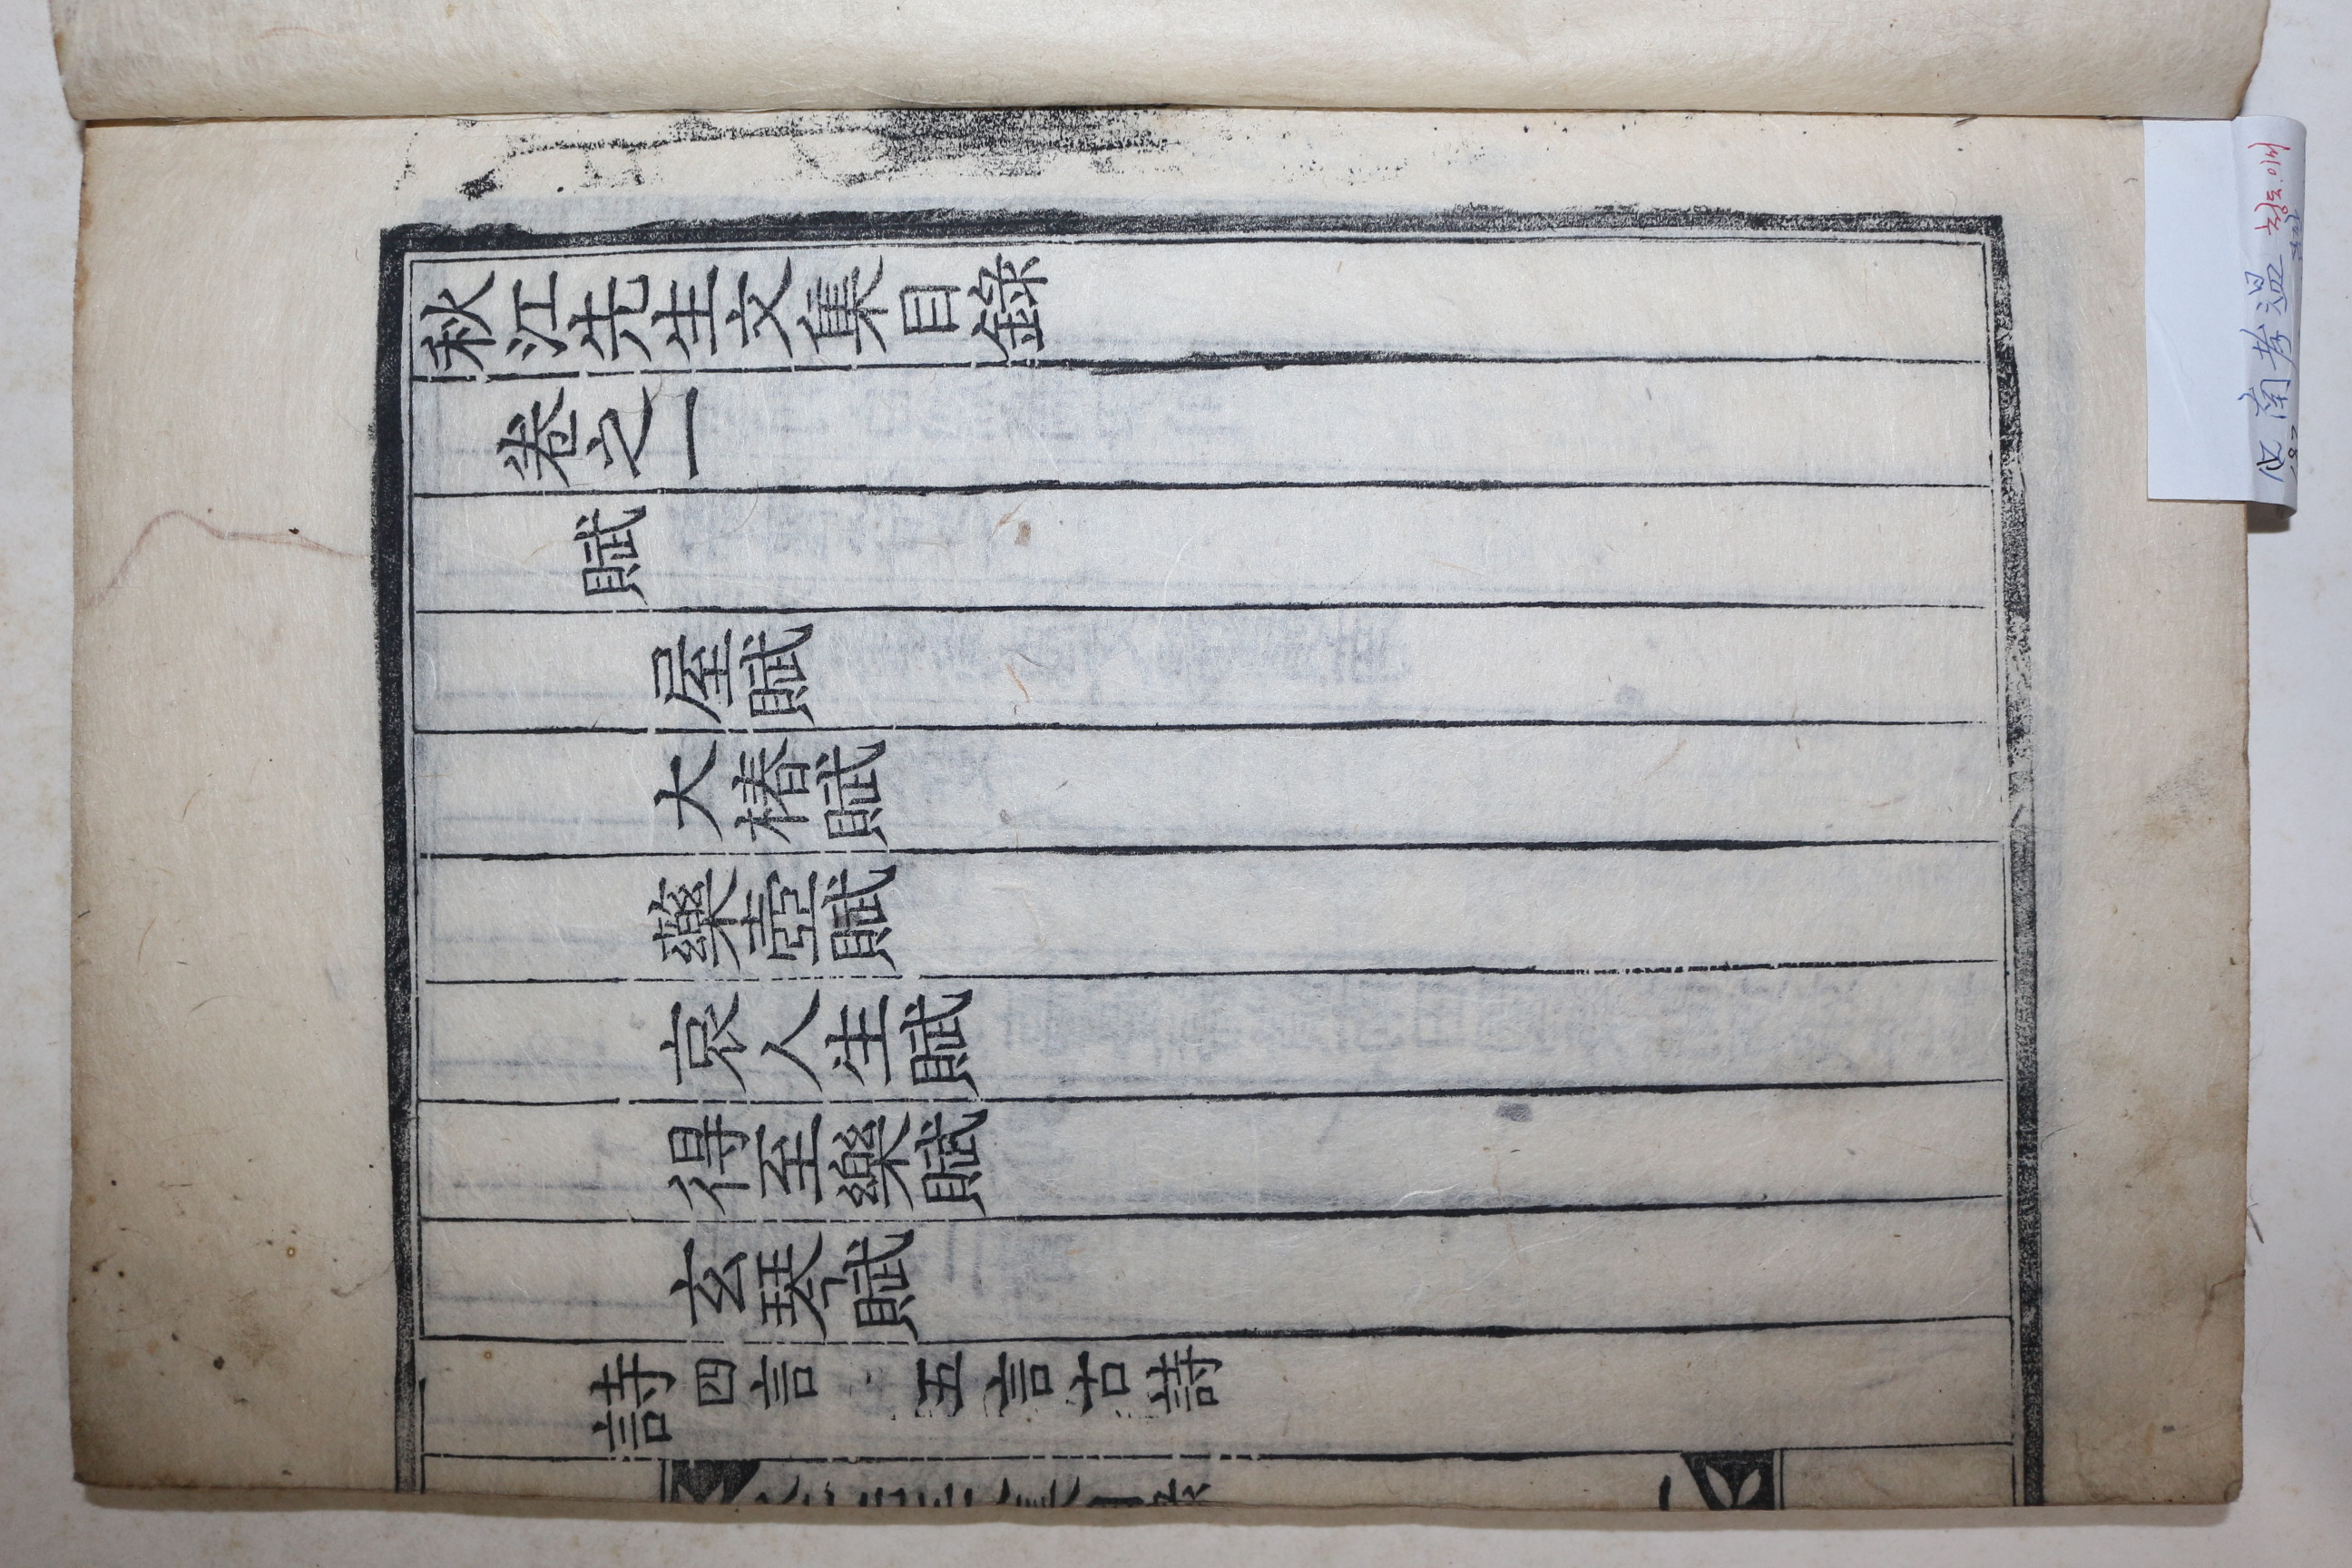 秋江先生文集目錄
卷之一
賦
屋賦
大椿賦
藥壺賦
哀人生賦
得至樂賦
玄琴賦
詩 四言 五言古詩
南孝溫